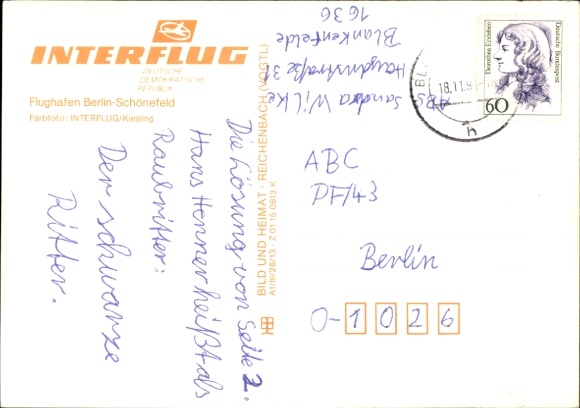 INTERFLUG
DEUTSCHE
DEMOKRATISCHE
REPUBLIK
Flughafen Berlin-Schönefeld
Farbfoto: INTERFLUG/Kiesling
Die Lösung von Seite 2.
Hans Henner heißt als
Raubritter:
Der schwarze
Ritter.
BILD UND HEIMAT · REICHENBACH (VOGTL)
A1/III/26/13 · Z 01 15 0613 K
ABS
Sandra Wilke
Haydnstraße 3
Blankenfelde
1636
Dorothea Erxleben
Deutsche Bundespost
60
18.11.9
h
ABC
PF/43
Berlin
O-1026